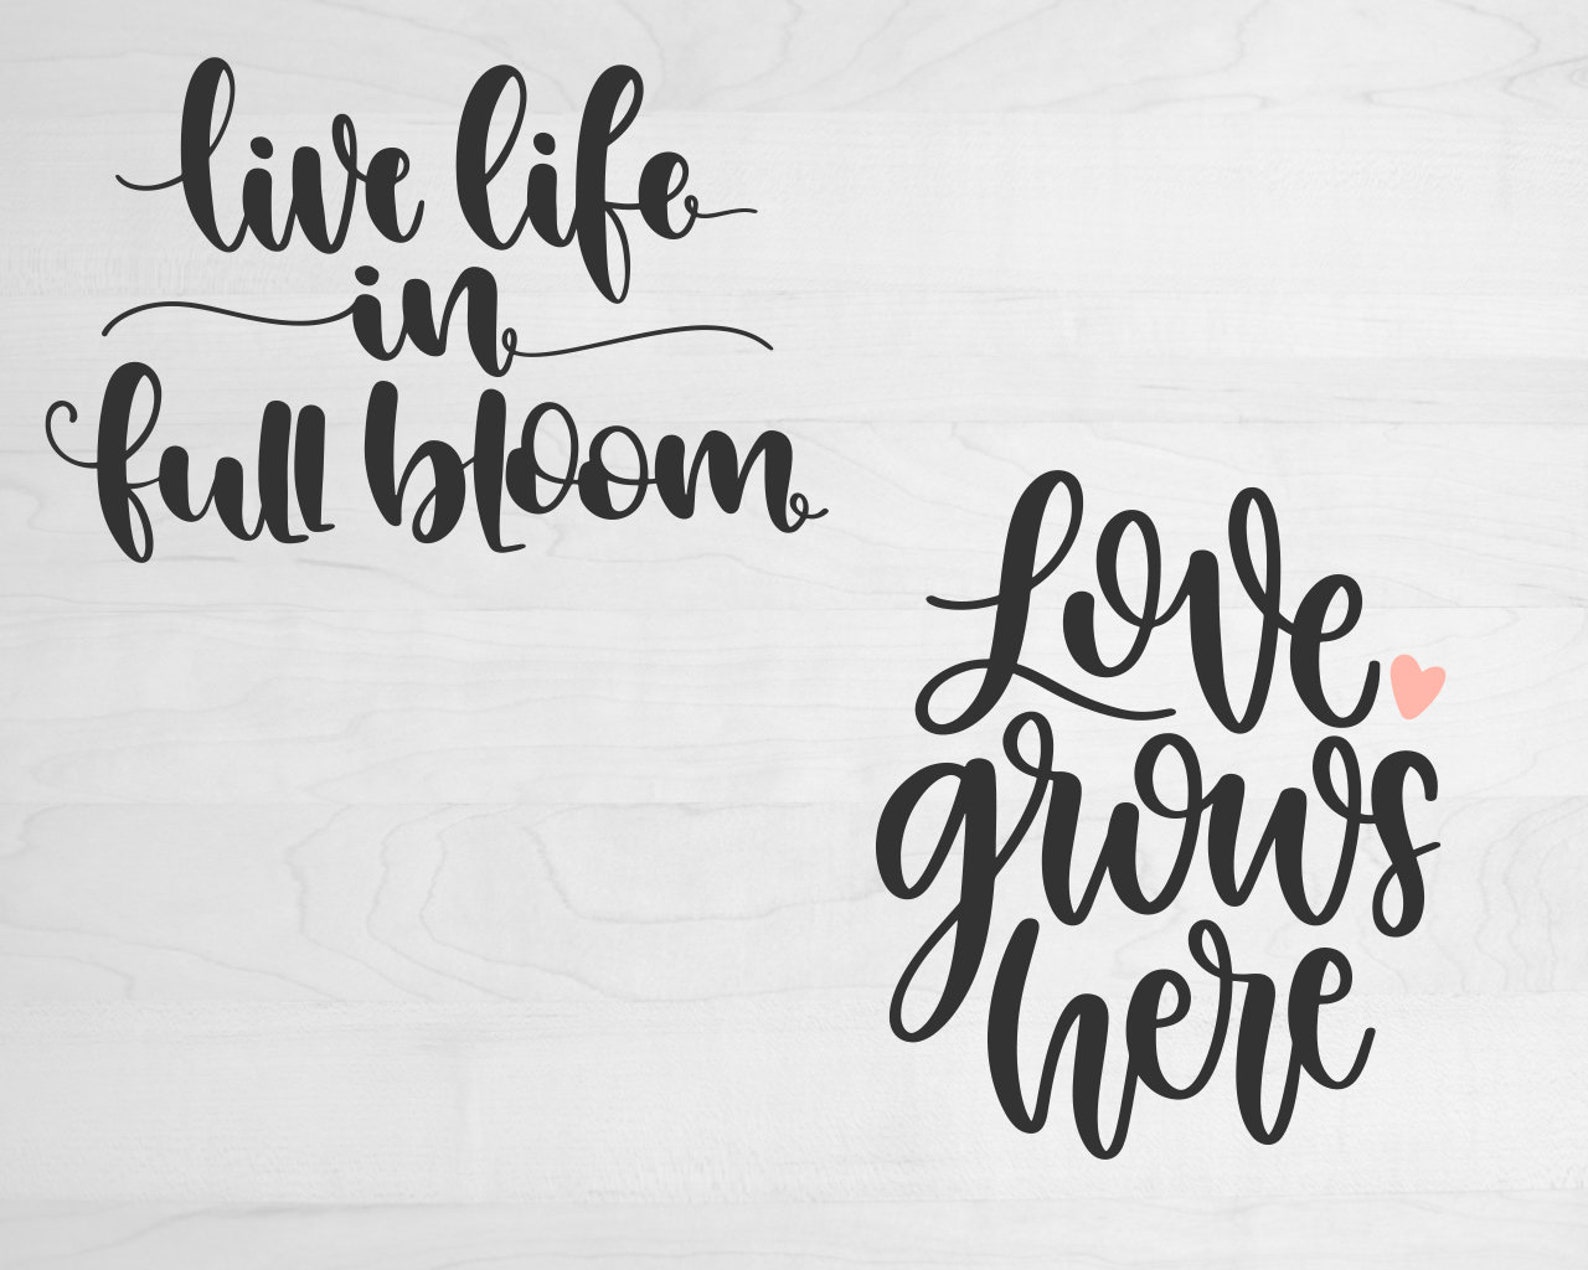 live life
in
full bloom
Love
grows
here